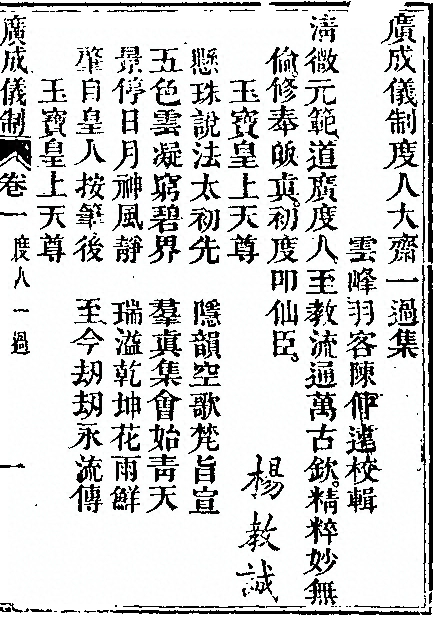 廣成儀制度人大齋一過集
雲峰羽客陳仲遠校輯
清微元範道廣度人至教流通萬古欽精粹妙無
倫修奉皈真初度叩仙臣
玉寶皇上天尊
楊教誠
懸珠說法太初先 隱韻空歌梵旨宣
五色雲凝窮碧界 羣真集會始靑天
景停日月神風靜 瑞溢乾坤花雨鮮
肇自皇人按筆後 至今刼刼永流傳
玉寶皇上天尊
廣成儀制 卷一 度人一過 一